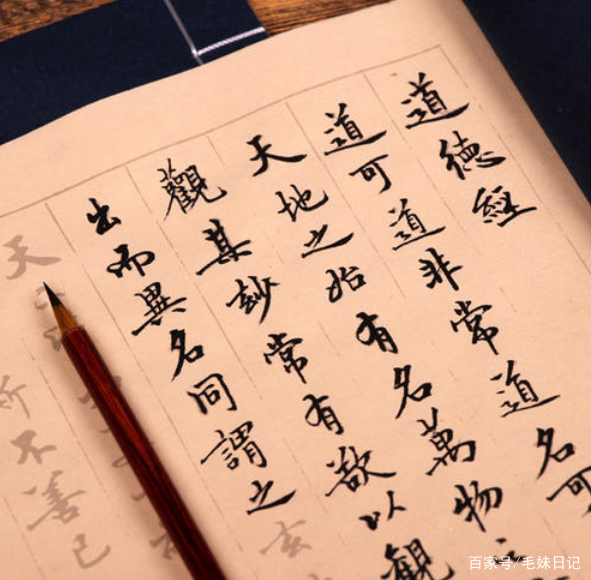 道德經
道可道非常道名可
天地之始有名萬物
觀其玅常有欲以觀
出而異名同謂之玄
天
不善已
百家号/毛妹日记